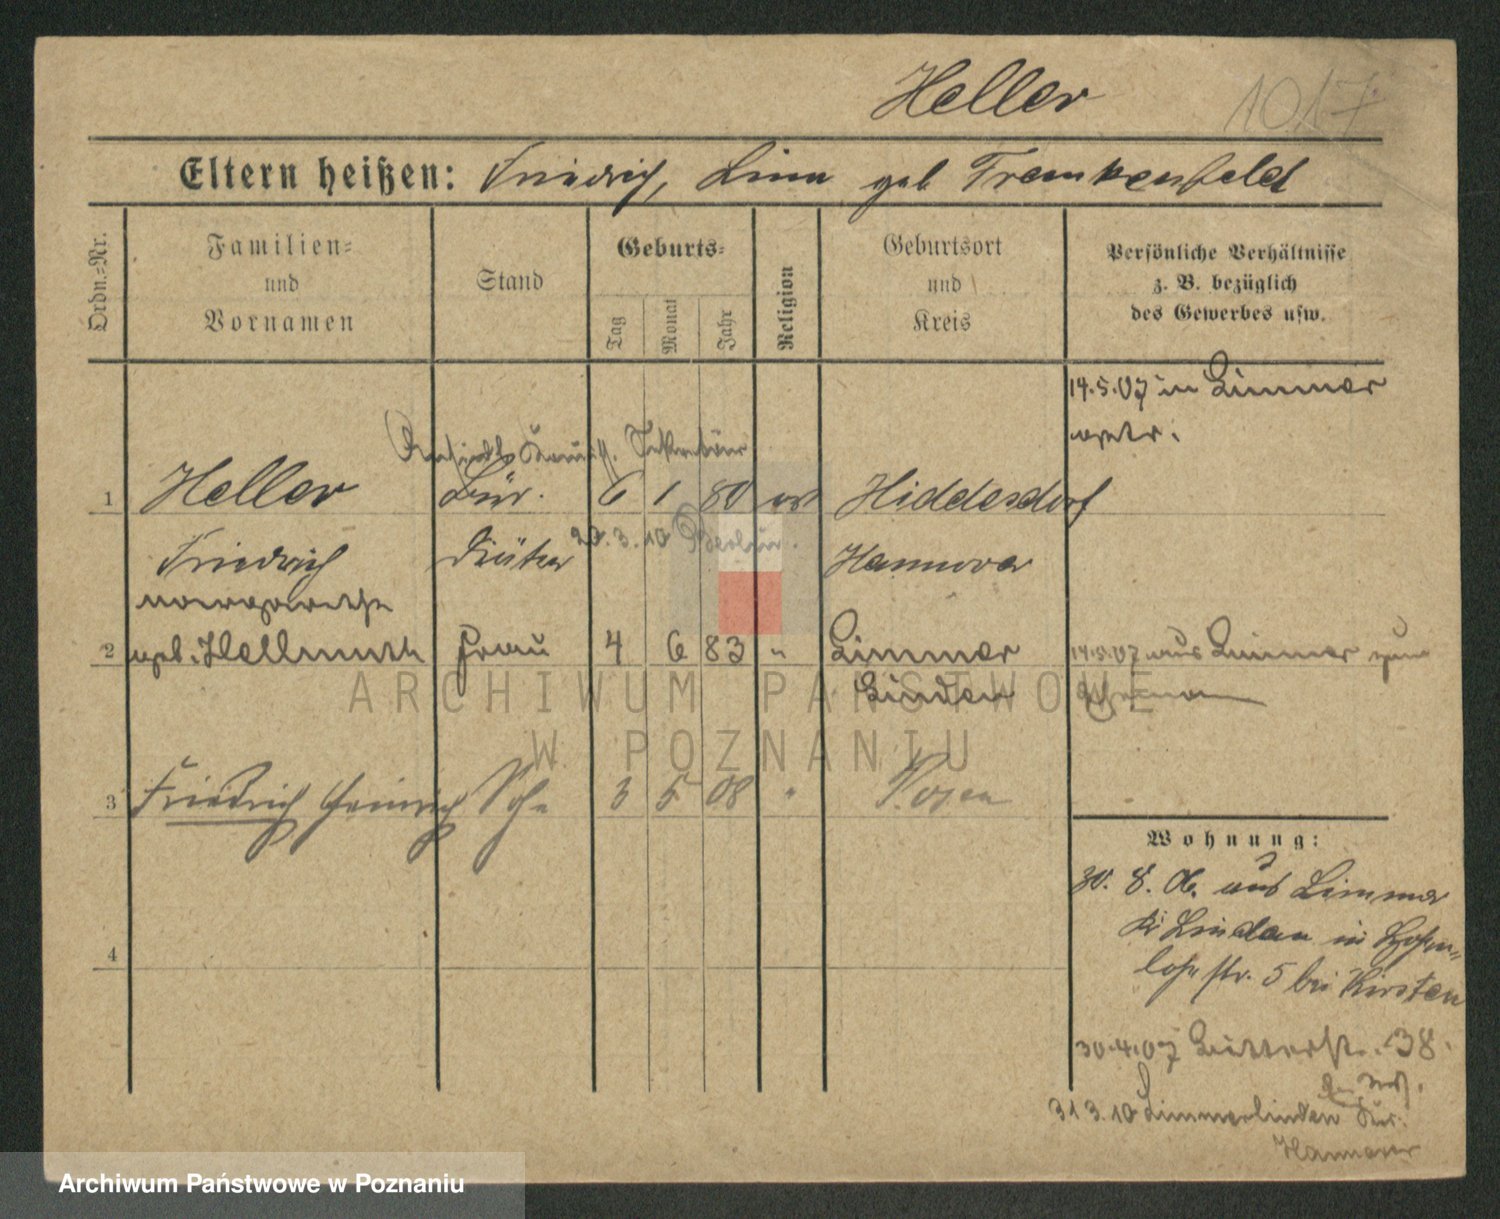 Heller 1017
Eltern heißen: Friedrich, Linn geb Frankenfeld
Ordn.=Nr.
Familien=
und
Vornamen
Stand
Geburts=
Tag
Monat
Jahr
Religion
Geburtsort
und
Kreis
Persönliche Verhältnisse
z. B. bezüglich
des Gewerbes usw.
14.5.07 in Limmer
1 Heller Bür. 6 1 80 ev Hiddesdorf
Friedrich Diätar 20.3.10 Berlin. Hannover
2 geb. Hellmuth Frau 4 6 83 " Limmer 14.5.07 aus Limmer zum
Linden
3 Friedrich Heinrich Sohn 3 5 08 " Posen
Wohnung:
30. 8. 06. aus Limmer
Kr Linden in Hohen=
lohe str. 5 bei Kirsten
4
30.4.07 38.
31 3.10 Limmerlinden
Hannover
ARCHIWUM PAŃSTWOWE
W POZNANIU
Archiwum Państwowe w Poznaniu